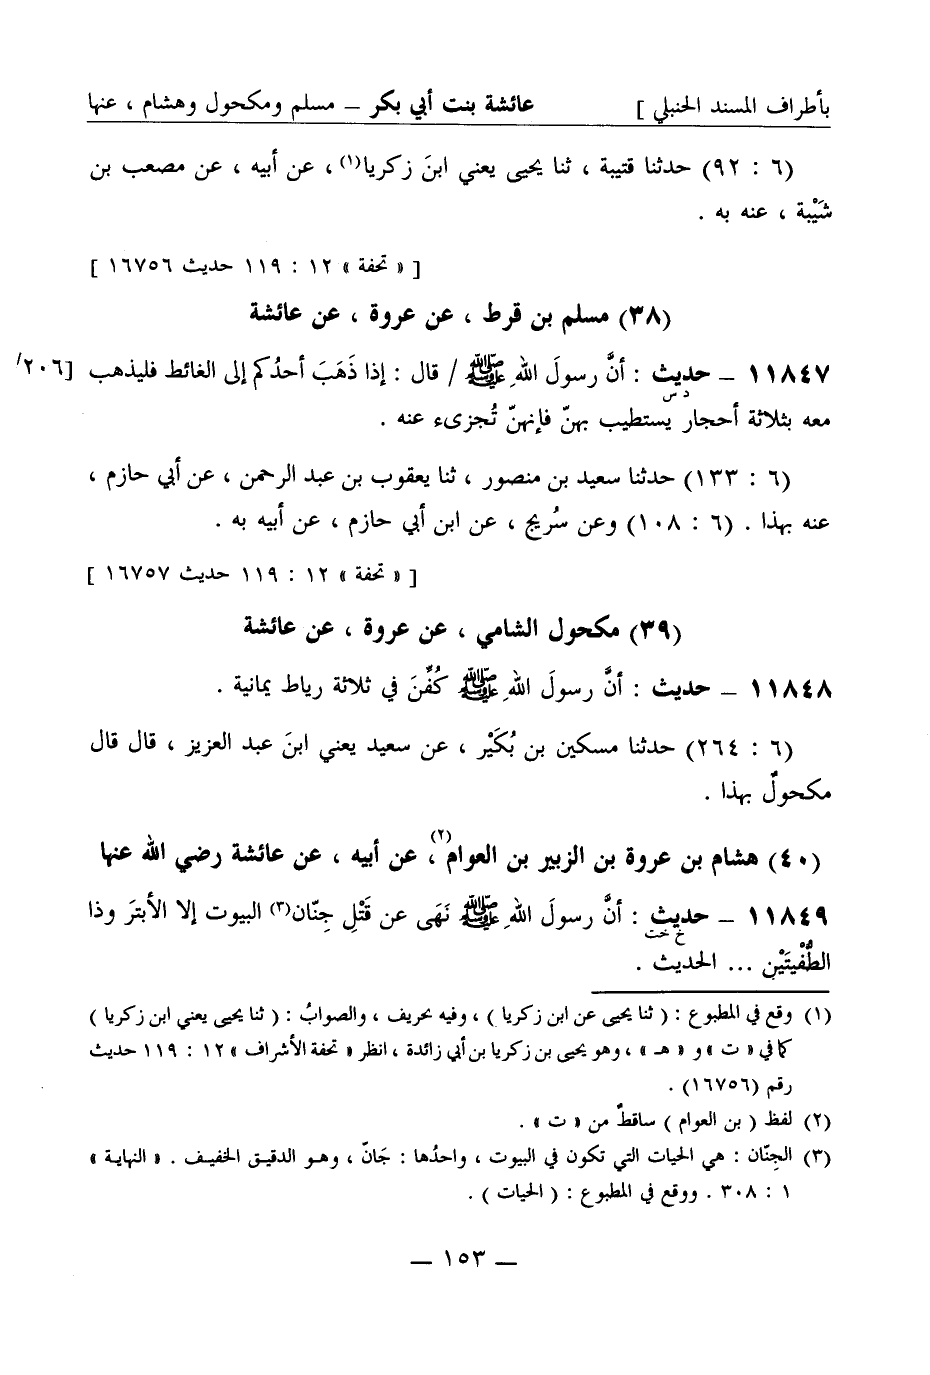 بأطراف المسند الحنبلي ] عائشة بنت أبي بكر – مسلم ومكحول وهشام ، عنها
(٦ : ٩٢) حدثنا قتيبة ، ثنا يحيى يعني ابنَ زكريا(١)، عن أبيه ، عن مصعب بن
شَيْبة ، عنه به .
[ « تحفة » ١٢ : ١١٩ حديث ١٦٧٥٦ ]
(٣٨) مسلم بن قرط ، عن عروة ، عن عائشة
١١٨٤٧ – حديث : أنَّ رسولَ اللهِ ﷺ / قال : إذا ذَهَبَ أحدُكم إلى الغائط فليذهب [٢٠٦/
د س
معه بثلاثة أحجار يستطيب بهنّ فإنهنّ تُجزىء عنه .
(٦ : ١٣٣) حدثنا سعيد بن منصور ، ثنا يعقوب بن عبد الرحمن ، عن أبي حازم ،
عنه بهذا . (٦ : ١٠٨) وعن سُريج ، عن ابن أبي حازم ، عن أبيه به .
[ « تحفة » ١٢ : ١١٩ حديث ١٦٧٥٧ ]
(٣٩) مكحول الشامي ، عن عروة ، عن عائشة
١١٨٤٨ – حديث : أنَّ رسولَ اللهِ ﷺ كُفِّنَ في ثلاثة رياط يمانية .
(٦ : ٢٦٤) حدثنا مسكين بن بُكَيْر ، عن سعيد يعني ابنَ عبد العزيز ، قال قال
مكحولٌ بهذا .
(٤٠) هشام بن عروة بن الزبير بن العوام(٢)، عن أبيه ، عن عائشة رضي الله عنها
١١٨٤٩ – حديث : أنَّ رسولَ اللهِ ﷺ نَهَى عن قَتْلِ جِنّان(٣) البيوت إلا الأبترَ وذا
خ خت
الطُّفْيتَيْنِ ... الحديث .
(١) وقع في المطبوع : ( ثنا يحيى عن ابن زكريا ) ، وفيه تحريف ، والصوابُ : ( ثنا يحيى يعني ابن زكريا )
كما في « ت » و « هـ » ، وهو يحيى بن زكريا بن أبي زائدة ، انظر « تحفة الأشراف » ١٢ : ١١٩ حديث
رقم (١٦٧٥٦) .
(٢) لفظ ( بن العوام ) ساقطٌ من « ت » .
(٣) الجِنّان : هي الحيات التي تكون في البيوت ، واحدُها : جَانّ ، وهو الدقيق الخفيف . « النهاية »
١ : ٣٠٨ . ووقع في المطبوع : ( الحيات ) .
– ١٥٣ –